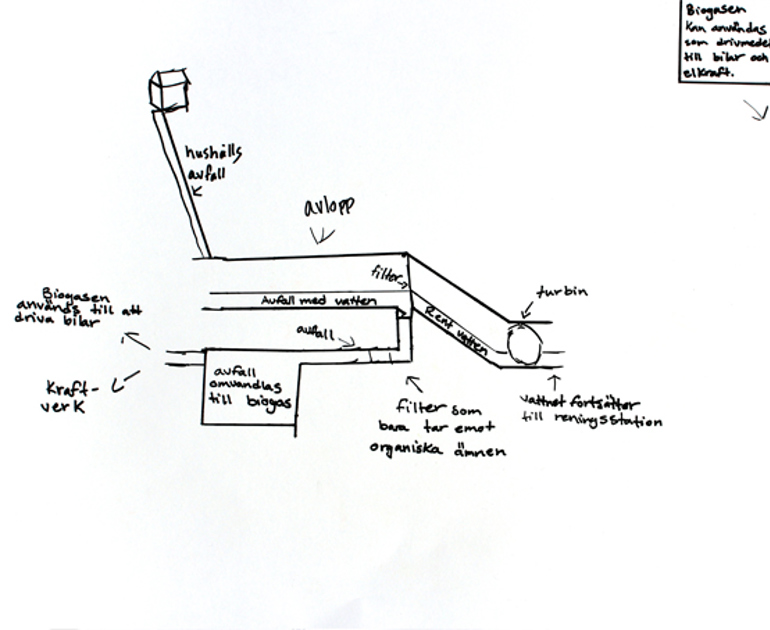 Biogasen
Kan användas
som drivmedel
till bilar och
elkraft.
hushålls
avfall
avlopp
filter
turbin
Biogasen
används till att
driva bilar
Avfall med vatten
Rent vatten
avfall
avfall
omvandlas
till biogas
Kraft-
verk
filter som
bara tar emot
organiska ämnen
vattnet fortsätter
till reningsstation